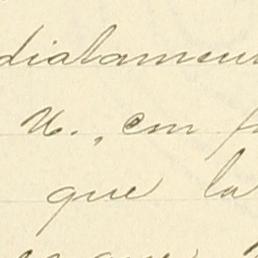 diatamen
U., em f
que la
que